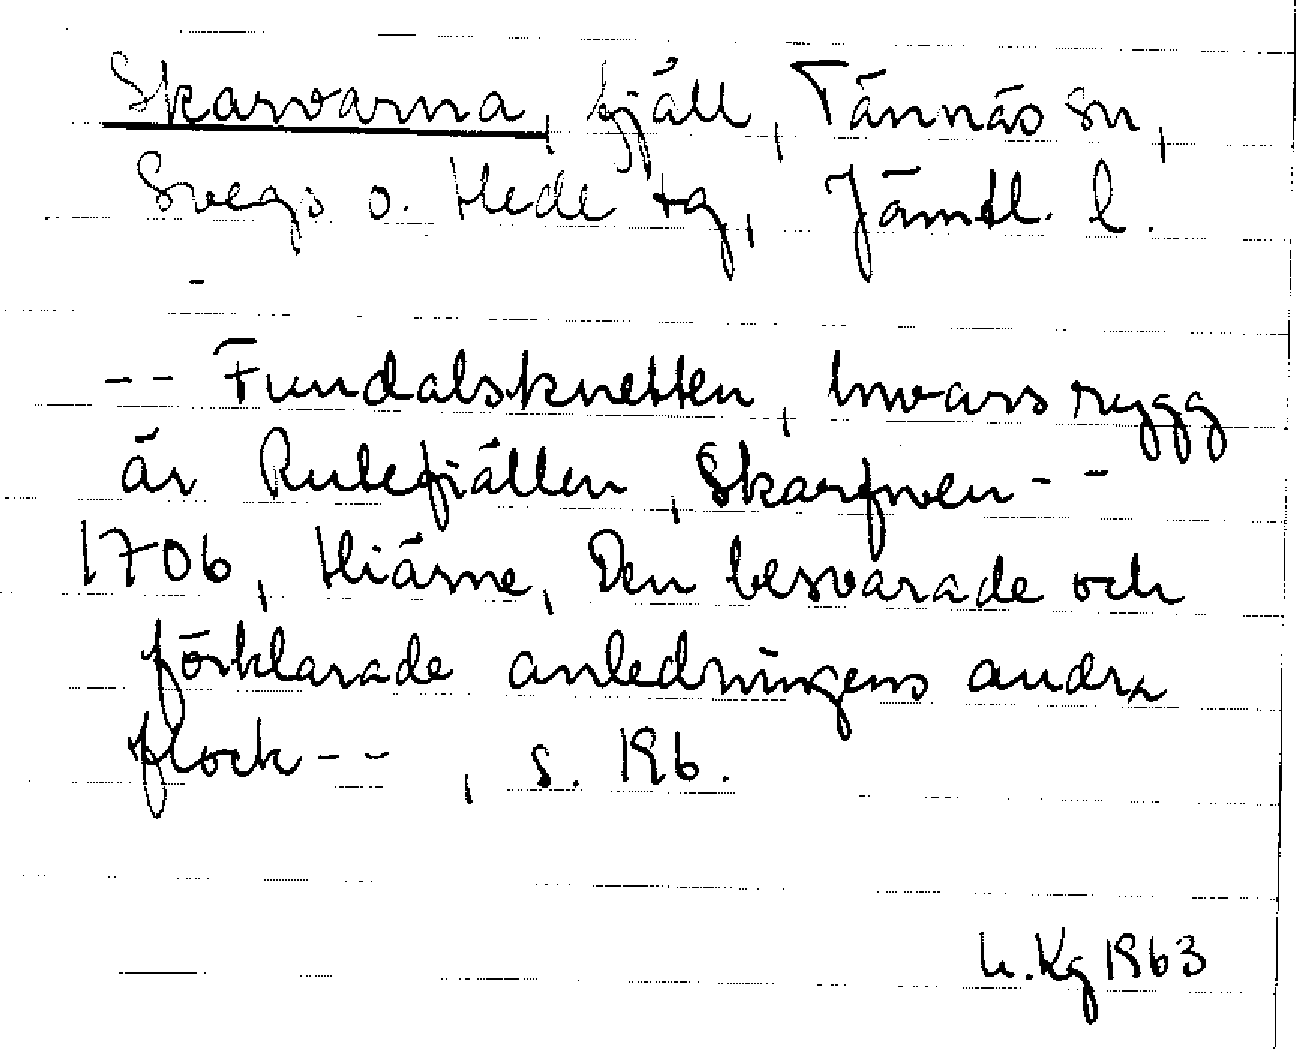 Skarvarna, fjäll, Tännäs sn,
Svegs o. Hede tg, Jämtl. l.
-
-- Fundalsknetten, hwars rygg
är Rutefiällen, Skarfwen--
1706, Hiärne, Den besvarade och
förklarade anledningens andra
flock-- , s. 196.
U. Kg 1963